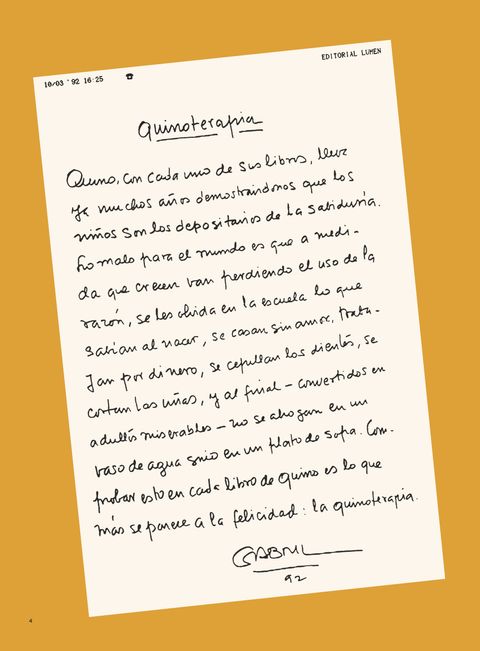 10/03 '92 16:25 ☎ EDITORIAL LUMEN
Quinoterapia
Quino, con cada uno de sus libros, lleva
ya muchos años demostrándonos que los
niños son los depositarios de la sabiduría.
Lo malo para el mundo es que a medi-
da que crecen van perdiendo el uso de la
razón, se les olvida en la escuela lo que
sabían al nacer, se casan sin amor, traba-
jan por dinero, se cepillan los dientes, se
cortan las uñas, y al final – convertidos en
adultos miserables – no se ahogan en un
vaso de agua sino en un plato de sopa. Com-
probar esto en cada libro de Quino es lo que
más se parece a la felicidad: la quinoterapia.
GABRIEL
92
4